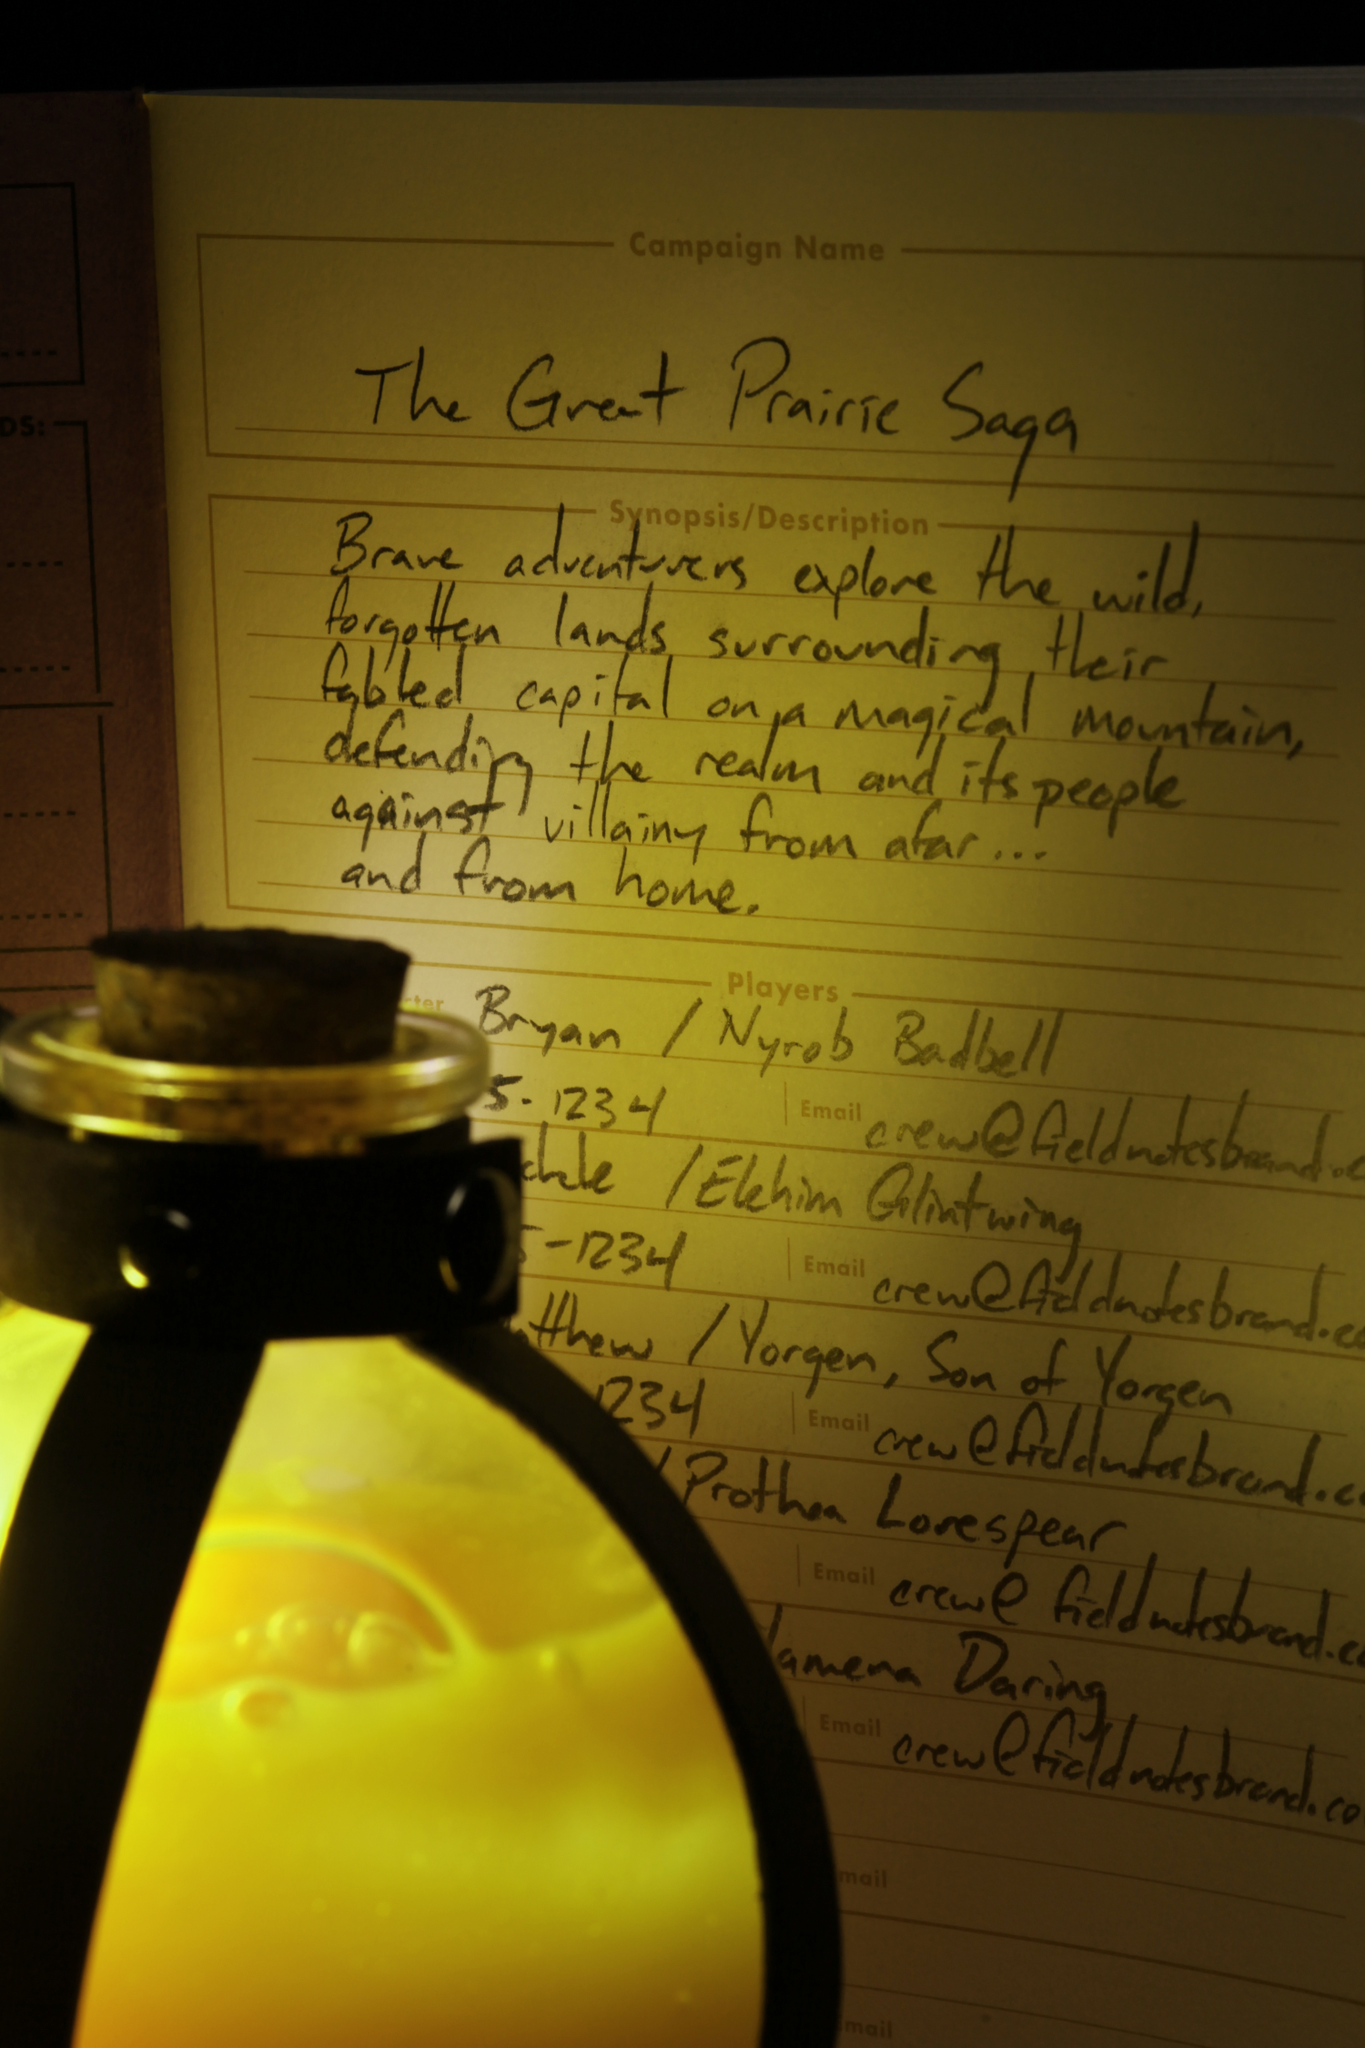 DS:
Campaign Name
The Great Prairie Saga
Synopsis/Description
Brave adventurers explore the wild,
forgotten lands surrounding their
fabled capital on a magical mountain,
defending the realm and its people
against villainy from afar...
and from home.
Players
Bryan / Nyrob Badbell
5-1234 Email crew@fieldnotesbrand.c
/Elkhim Glintwing
-1234 Email crew@fieldnotesbrand.co
tthew / Yorgen, Son of Yorgen
1234 Email crew@fieldnotesbrand.co
/ Prothea Lorespear
Email crew@fieldnotesbrand.co
lamena Daring
Email crew@fieldnotesbrand.co
mail
mail